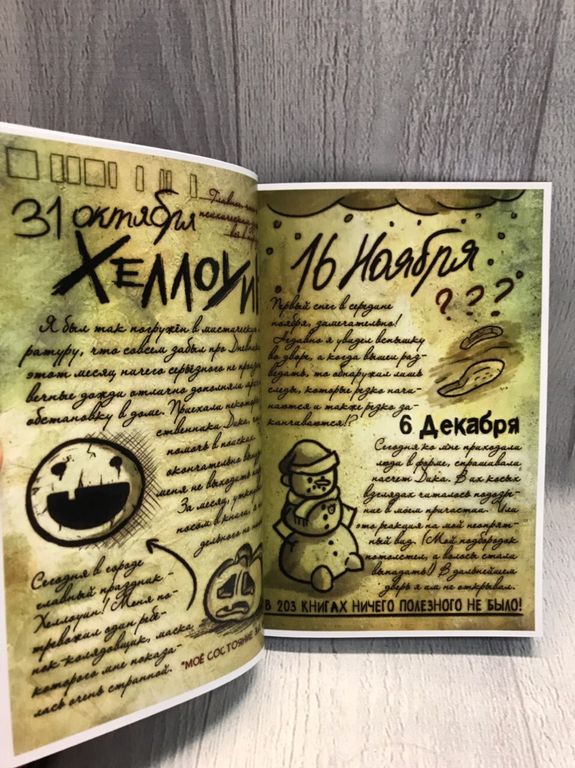 31 октября
Хеллоуи
Я был так погружён в мистическую
ратуру, что совсем забыл про Дневни
этот месяц ничего серьёзного не прои
верные дожди отлично дополняли
обстановку в доме. Приехали некоторы
ственники Дика,
помочь в поисках
окончательно
меня не выходить
За месяц,
носом в книги, я
дельного не
Сегодня в городе
главный праздник -
Хеллоуин! Меня по-
тревожил один ребё-
нок-колядовщик, маска
которого мне показа-
лась очень странной.
*МОЁ СОСТОЯНИЕ
16 Ноября
???
Первый снег в середине
ноября, замечательно!
Недавно я увидел вспышку
во дворе, а когда вышел раз-
ведать, то обнаружил лишь
следы, которые резко начи-
наются и также резко за-
канчиваются!?
6 Декабря
Сегодня ко мне приходили
люди в форме, спрашивали
насчет Дика. В их косых
взглядах читалось подозре-
ние в моём причастии. Или
это реакция на мой неопрят-
ный вид. (Мой подбородок
потолстел, а волосы стали
выпадать) В дальнейшем
дверь я им не открывал.
В 203 КНИГАХ НИЧЕГО ПОЛЕЗНОГО НЕ БЫЛО!